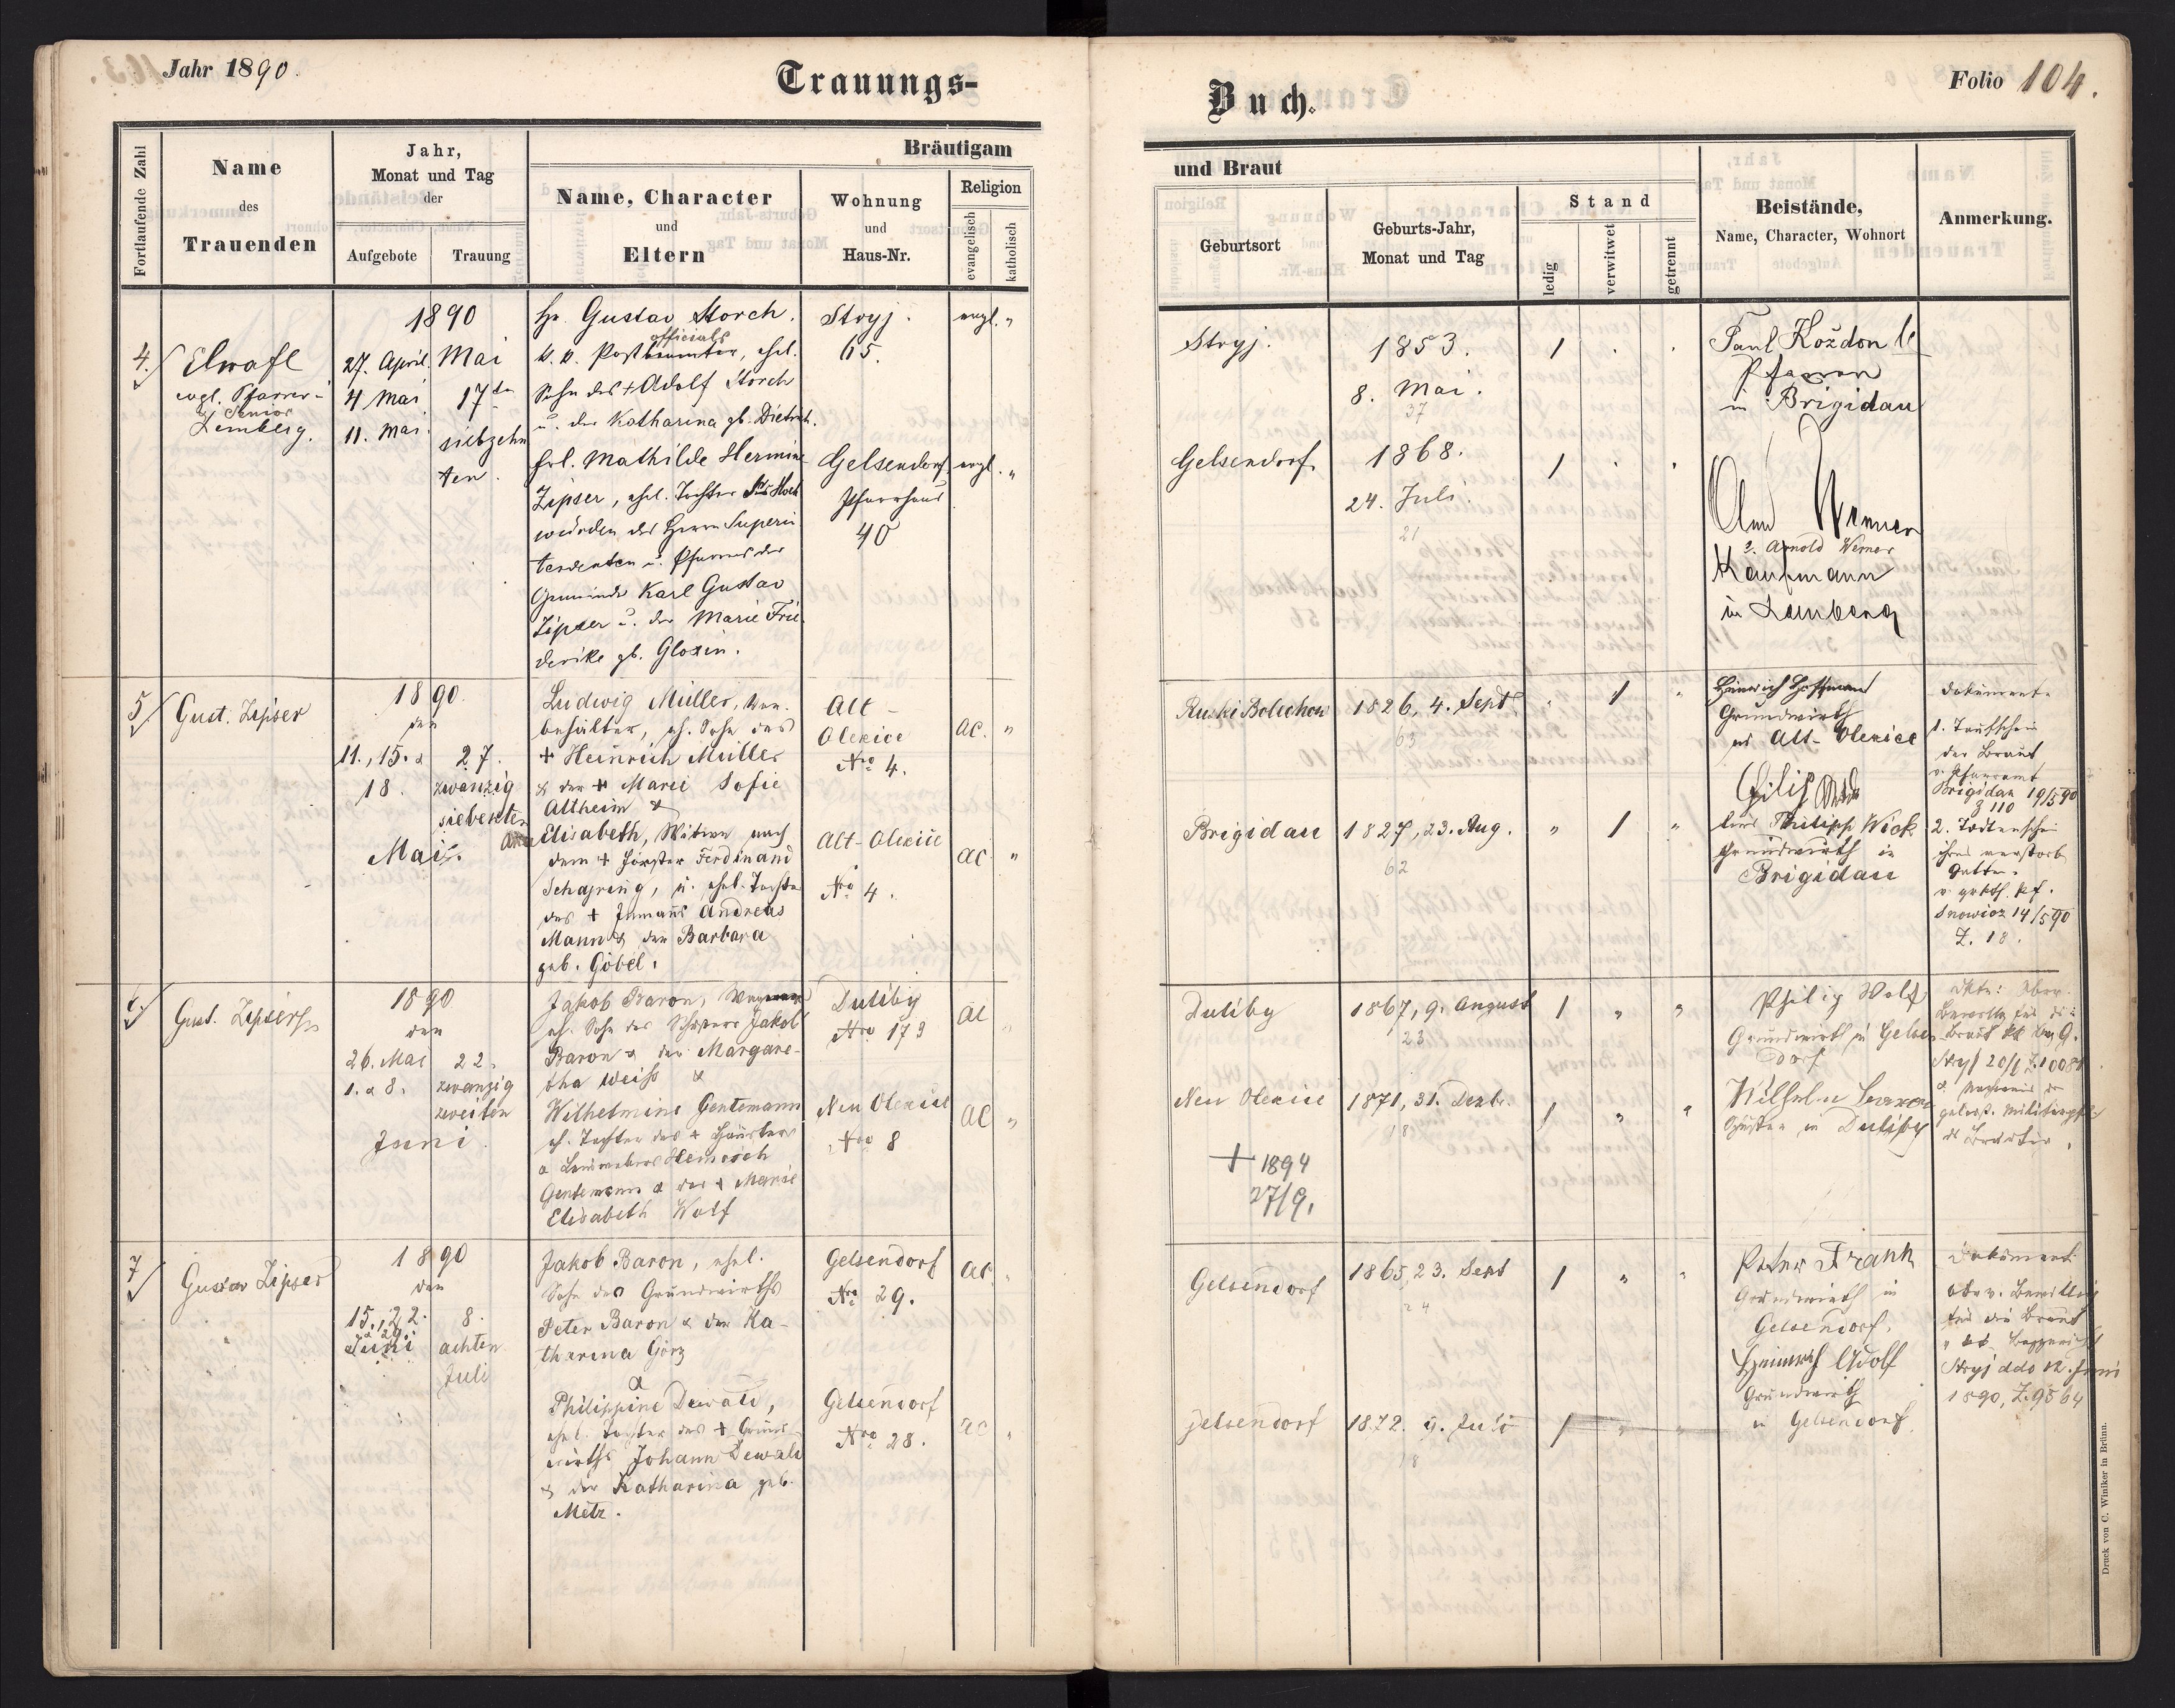 Jahr 1890.
Trauungs-
Buch.
Folio 104.
Fortlaufende Zahl
Name
des
Trauenden
Jahr,
Monat und Tag
der
Aufgebote
Trauung
Bräutigam
Name, Character
und
Eltern
Wohnung
und
Haus-Nr.
Religion
evangelisch
katholisch
und Braut
Geburtsort
Geburts-Jahr,
Monat und Tag
Stand
ledig
verwitwet
getrennt
Beistände,
Name, Character, Wohnort
Anmerkung.
4.
evgl. Pfarrer
Senior
Lemberg.
1890
27. April
4 Mai
11. Mai
Mai
17ten
siebzehn
ten
Hr. Gustav Storch.
officials
k. k. Postbeamter, ehl.
Sohn des + Adolf Storch
u. der Katharina gb. Dietrich.
Frl. Mathilde Hermine
Zipser, ehl. Tochter Hoch
würden des Herrn Superin
tendenten u. Pfarrers der
Gemeinde Karl Gustav
Zipser u. der Marie Frie
derike gb. Gloxin.
Stryj.
65.
Gelsendorf
Pfarrhaus
40
evgl. "
evgl. "
Stryj.
Gelsendorf.
1853.
8. Mai.
37
1868.
24. Juli.
21
1
1
Paul Koždon
Pfarrer
in Brigidau
Werner
Arnold Werner
Kaufmann
in Lemberg
5
Gust. Zipser
1890.
den
11., 15. &
18.
27.
zwanzig
siebenten
Mai.
Ludwig Müller,
behälter, eh. Sohn des
+ Heinrich Müller
& der + Marie Sofie
Altheim &
Elisabeth, Witwe nach
dem + Förster Ferdinand
Schajring, u. ehl. Tochter
des + Inmanns Andreas
Mann & der Barbara
geb. Göbel.
Alt-
Olexice
Nro 4.
Alt-Olexice
Nro 4.
ac. "
ac "
Ruski Bolechow
Brigidau
1826, 4. Sept.
63
1827, 23. Aug.
62
" 1 "
" 1 "
Heinrich Hoffmann
Grundwirth
Alt-Olexice
Philipp Wick
Grundwirth in
Brigidau
Dokumente
1. Taufschein
der Braut
v. Pfarramt
Brigidau 19/5 90
Z 110
2. Todtenschein
ihres verstorb.
Gatten
Snowicz 14/5 90
Z. 18.
6.
Gust. Zipser
1890
den
26. Mai
1. & 8.
22.
zwanzig
zweiten
Juni
Jakob Baron,
eh. Sohn des Jakob
Baron & der Margare-
tha Weiss &
Wilhelmine Gentemann
eh. Tochter des +
& Heinrich
Gentemann & der + Marie
Elisabeth Wolf
Duliby
Nro 173
Neu Olexice
Nro 8
ac "
ac "
Duliby
Neu Olexice
+ 1894
27/9.
1867, 9. August
23
1871, 31. Dezbr.
18
1 " "
1 " "
Philip Wolf
Grundwirth in Gelsen
dorf
Wilhelm
in Duliby
Stryj 20/
7
Gustav Zipser
1890
den
15., 22.
& 29.
Juni
8.
achten
Juli
Jakob Baron, ehel.
Sohn des Grundwirths
Peter Baron & der Ka-
tharina Görz
&
Philippine Dewald,
ehel. Tochter des + Grund
wirths Johann Dewald
& der Katharina geb.
Metz.
Gelsendorf
Nro 29.
Gelsendorf
Nro 28.
ac "
ac "
Gelsendorf
Gelsendorf
1865, 23. Sept
24
1872. 9. Juli
18
1 " "
1 " "
Peter Frank
Grundwirth in
Gelsendorf.
Heinrich Wolf
Grundwirth
in Gelsendorf.
Dokument
für die Braut
Stryj ddo 12. Juni
1890, Z. 9564
Druck von C. Winiker in Brünn.